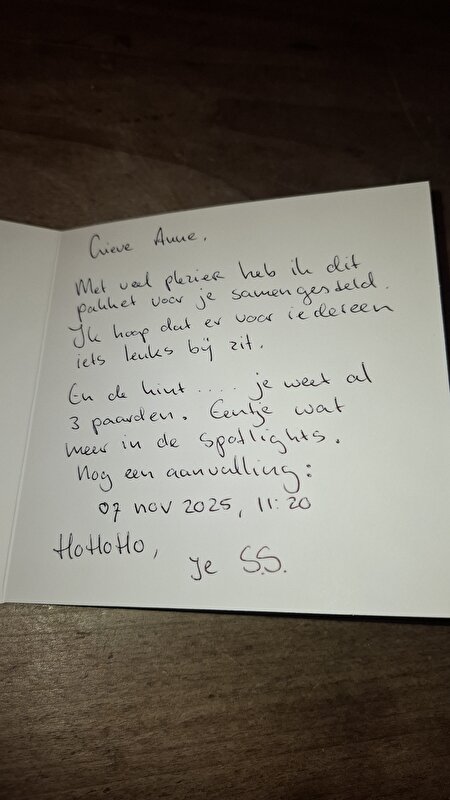 Lieve Anne,
Met veel plezier heb ik dit
pakket voor je samengesteld.
Ik hoop dat er voor iedereen
iets leuks bij zit.
En de hint .... je weet al
3 paarden. Eentje wat
meer in de spotlights.
Nog een aanvulling:
07 nov 2025, 11:20
HoHoHo,
je S.S.